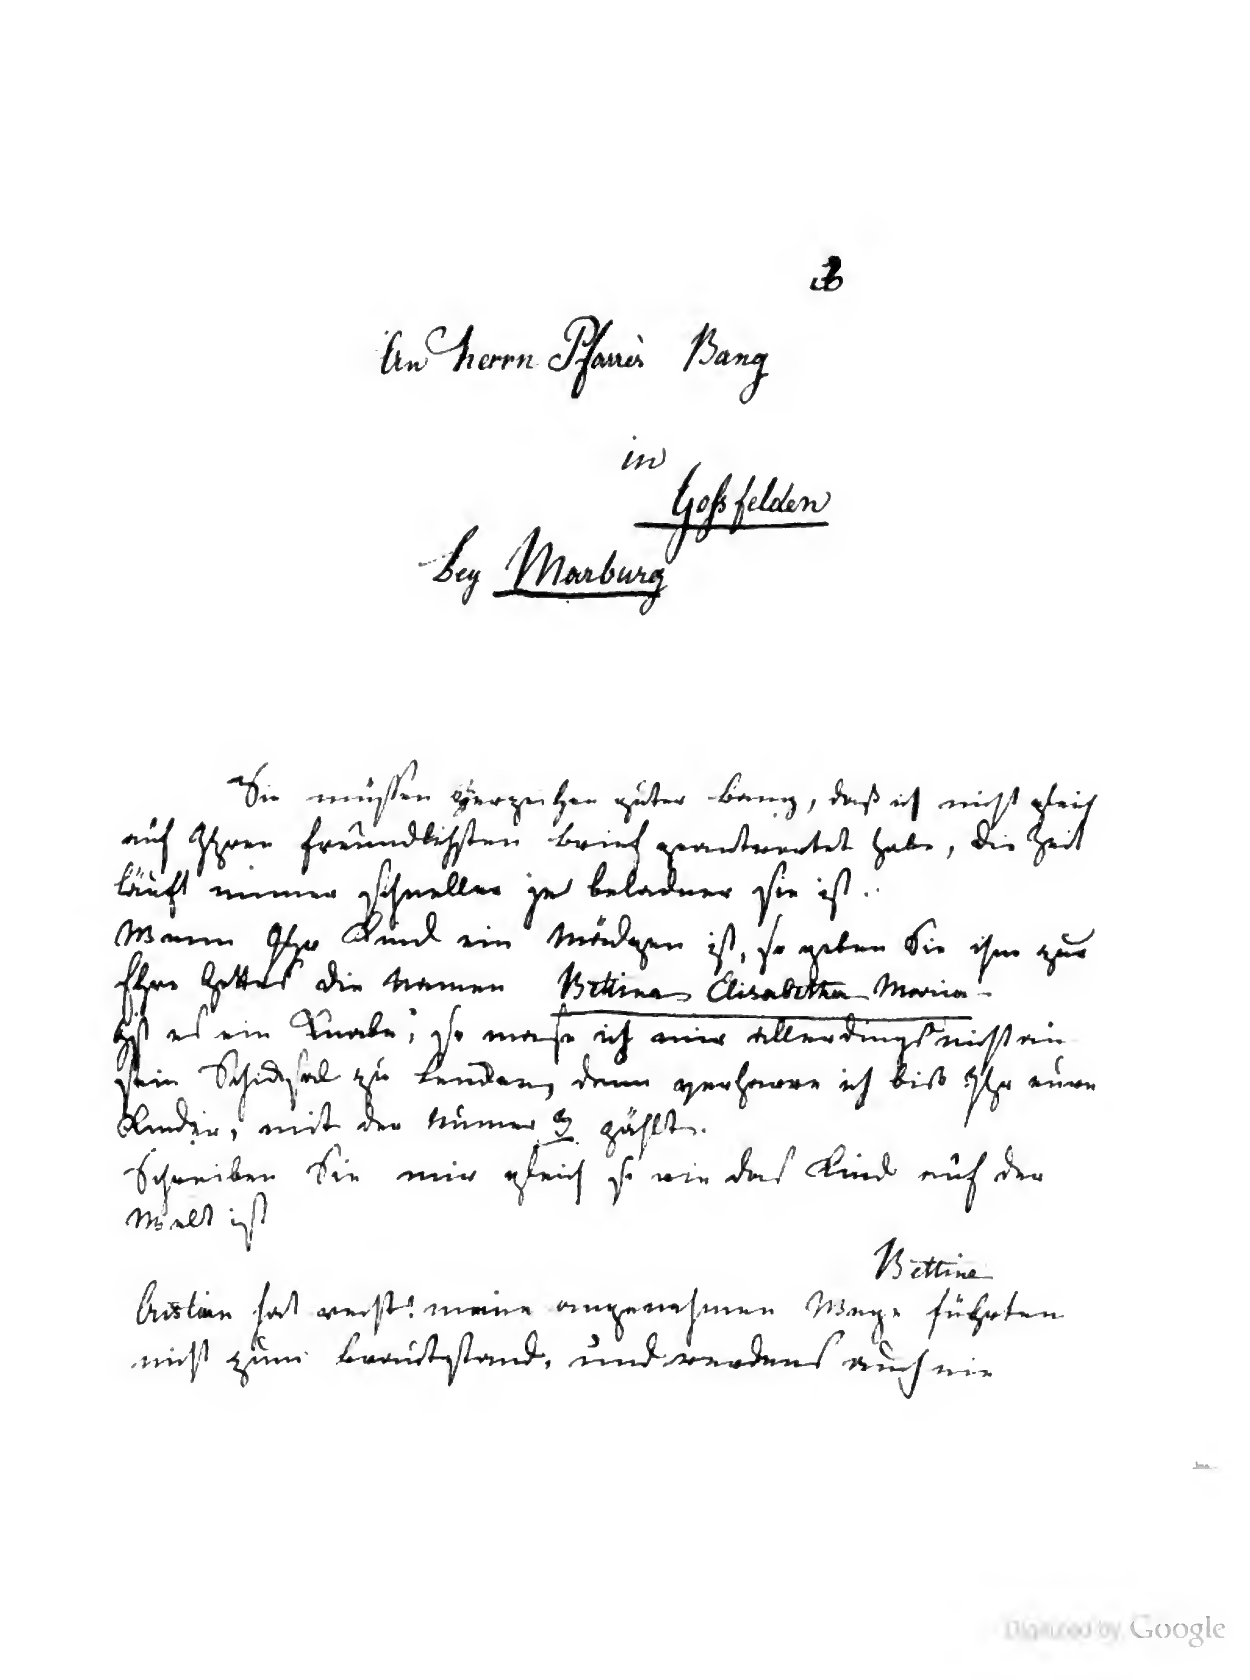 An Herrn Pfarrer Bang
in
Goßfelden
bey Marburg
Sie müssen verzeihen guter Bang, daß ich nicht gleich
auf Ihren freundlichsten Brief geantwortet habe, die Zeit
läuft immer schneller je beladner sie ist.
Wenn Ihr Kind ein Mädgen ist, so geben Sie ihm zur
Ehre Gottes die Namen Bettina Elisabetha Maria
ist es ein Knabe, so maße ich mir allerdings nicht an
sein Schicksal zu lenken, denn verharre ich biß Ihr eure
Kinder, mit der Numer 3 zählt.
Schreiben Sie mir gleich so wie das Kind auf der
Welt ist
Bettine
Cristian hat recht! meine angenehmen Wege führten
nicht zum Brautstand, und werdens auch nie
Digitized by Google